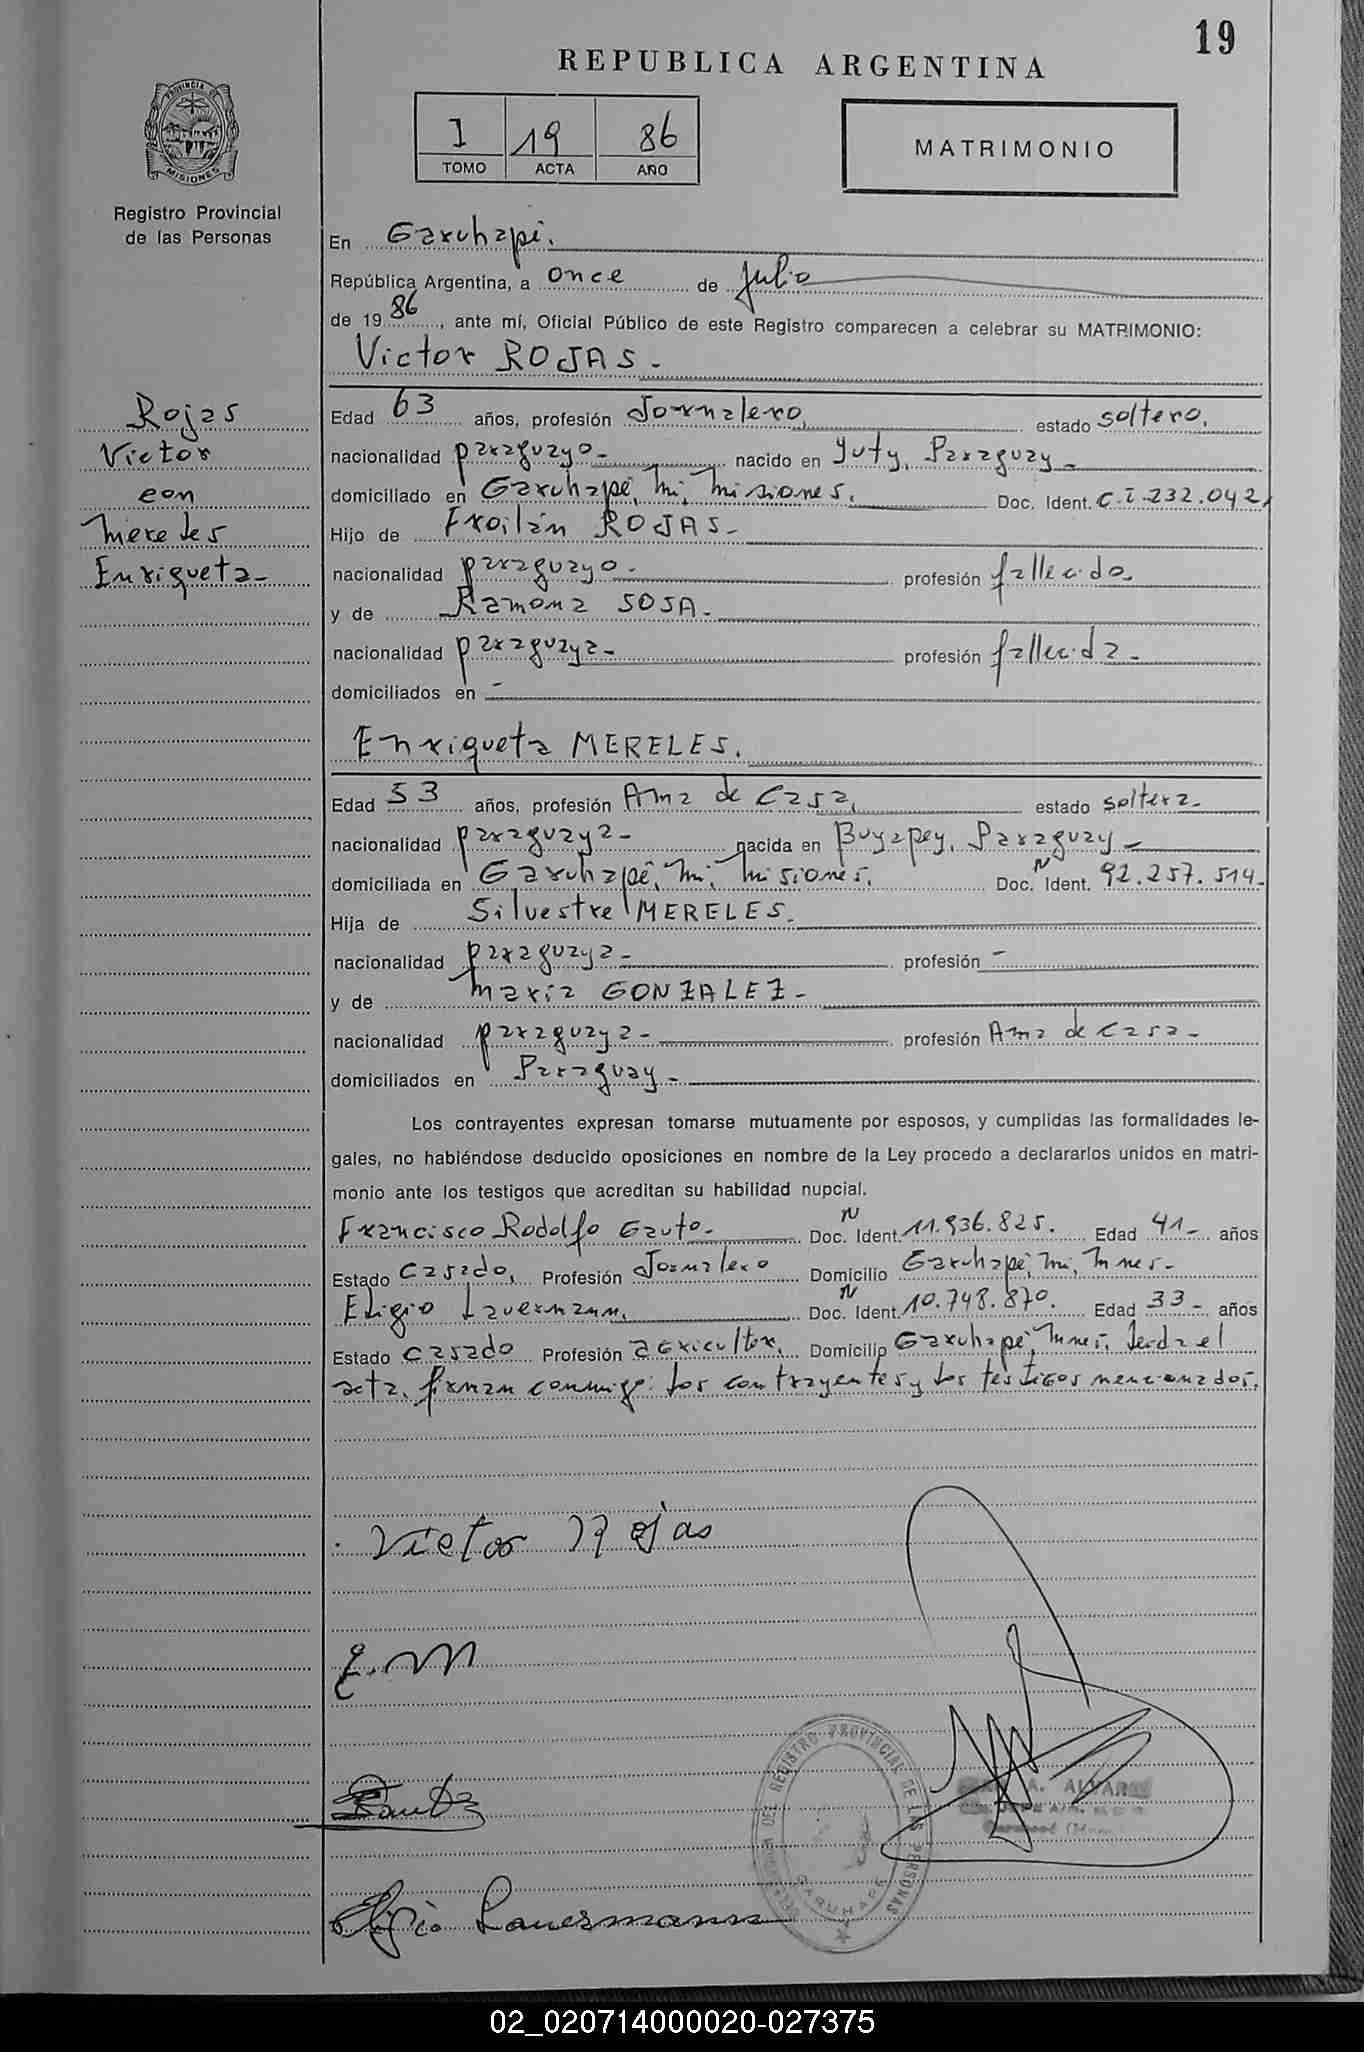 19
REPUBLICA ARGENTINA
I 19 86
TOMO ACTA AÑO
MATRIMONIO
PROVINCIA DE
MISIONES
Registro Provincial
de las Personas
Rojas
Victor
con
Mereles
Enriqueta-
En Garuhapé.
República Argentina, a once de Julio
de 1986, ante mí, Oficial Público de este Registro comparecen a celebrar su MATRIMONIO:
Victor ROJAS.-
Edad 63 años, profesión Jornalero, estado soltero.
nacionalidad paraguayo- nacido en Yuty, Paraguay-
domiciliado en Garuhapé, Mi, Misiones. Doc. Ident. C.I. 232.042,
Hijo de Froilán ROJAS-
nacionalidad paraguayo- profesión fallecido.
y de Ramona SOSA.
nacionalidad paraguaya- profesión fallecida-
domiciliados en -
Enriqueta MERELES.
Edad 53 años, profesión Ama de Casa, estado soltera-
nacionalidad paraguaya- nacida en Buyapey, Paraguay-
domiciliada en Garuhapé, Mi, Misiones. Doc. N Ident. 92.257.514-
Hija de Silvestre MERELES.
nacionalidad paraguaya- profesión -
y de Maria GONZALEZ-
nacionalidad paraguaya- profesión Ama de Casa-
domiciliados en Paraguay-
Los contrayentes expresan tomarse mutuamente por esposos, y cumplidas las formalidades le-
gales, no habiéndose deducido oposiciones en nombre de la Ley procedo a declararlos unidos en matri-
monio ante los testigos que acreditan su habilidad nupcial.
Francisco Rodolfo Gauto- Doc. N Ident. 11.936.825. Edad 41- años
Estado Casado, Profesión Jornalero Domicilio Garuhapé, Mi, Mnes-
Eligio Lauermann, Doc. N Ident. 10.748.870. Edad 33- años
Estado Casado Profesión agricultor, Domicilio Garuhapé, Mnes, Leida el
acta, firman conmigo: los contrayentes y los testigos mencionados.
Victor Rojas
E. M
Eligio Lauermann
DEL REGISTRO PROVINCIAL DE LAS PERSONAS
GARUHAPE
A. ALVAREZ
02_020714000020-027375